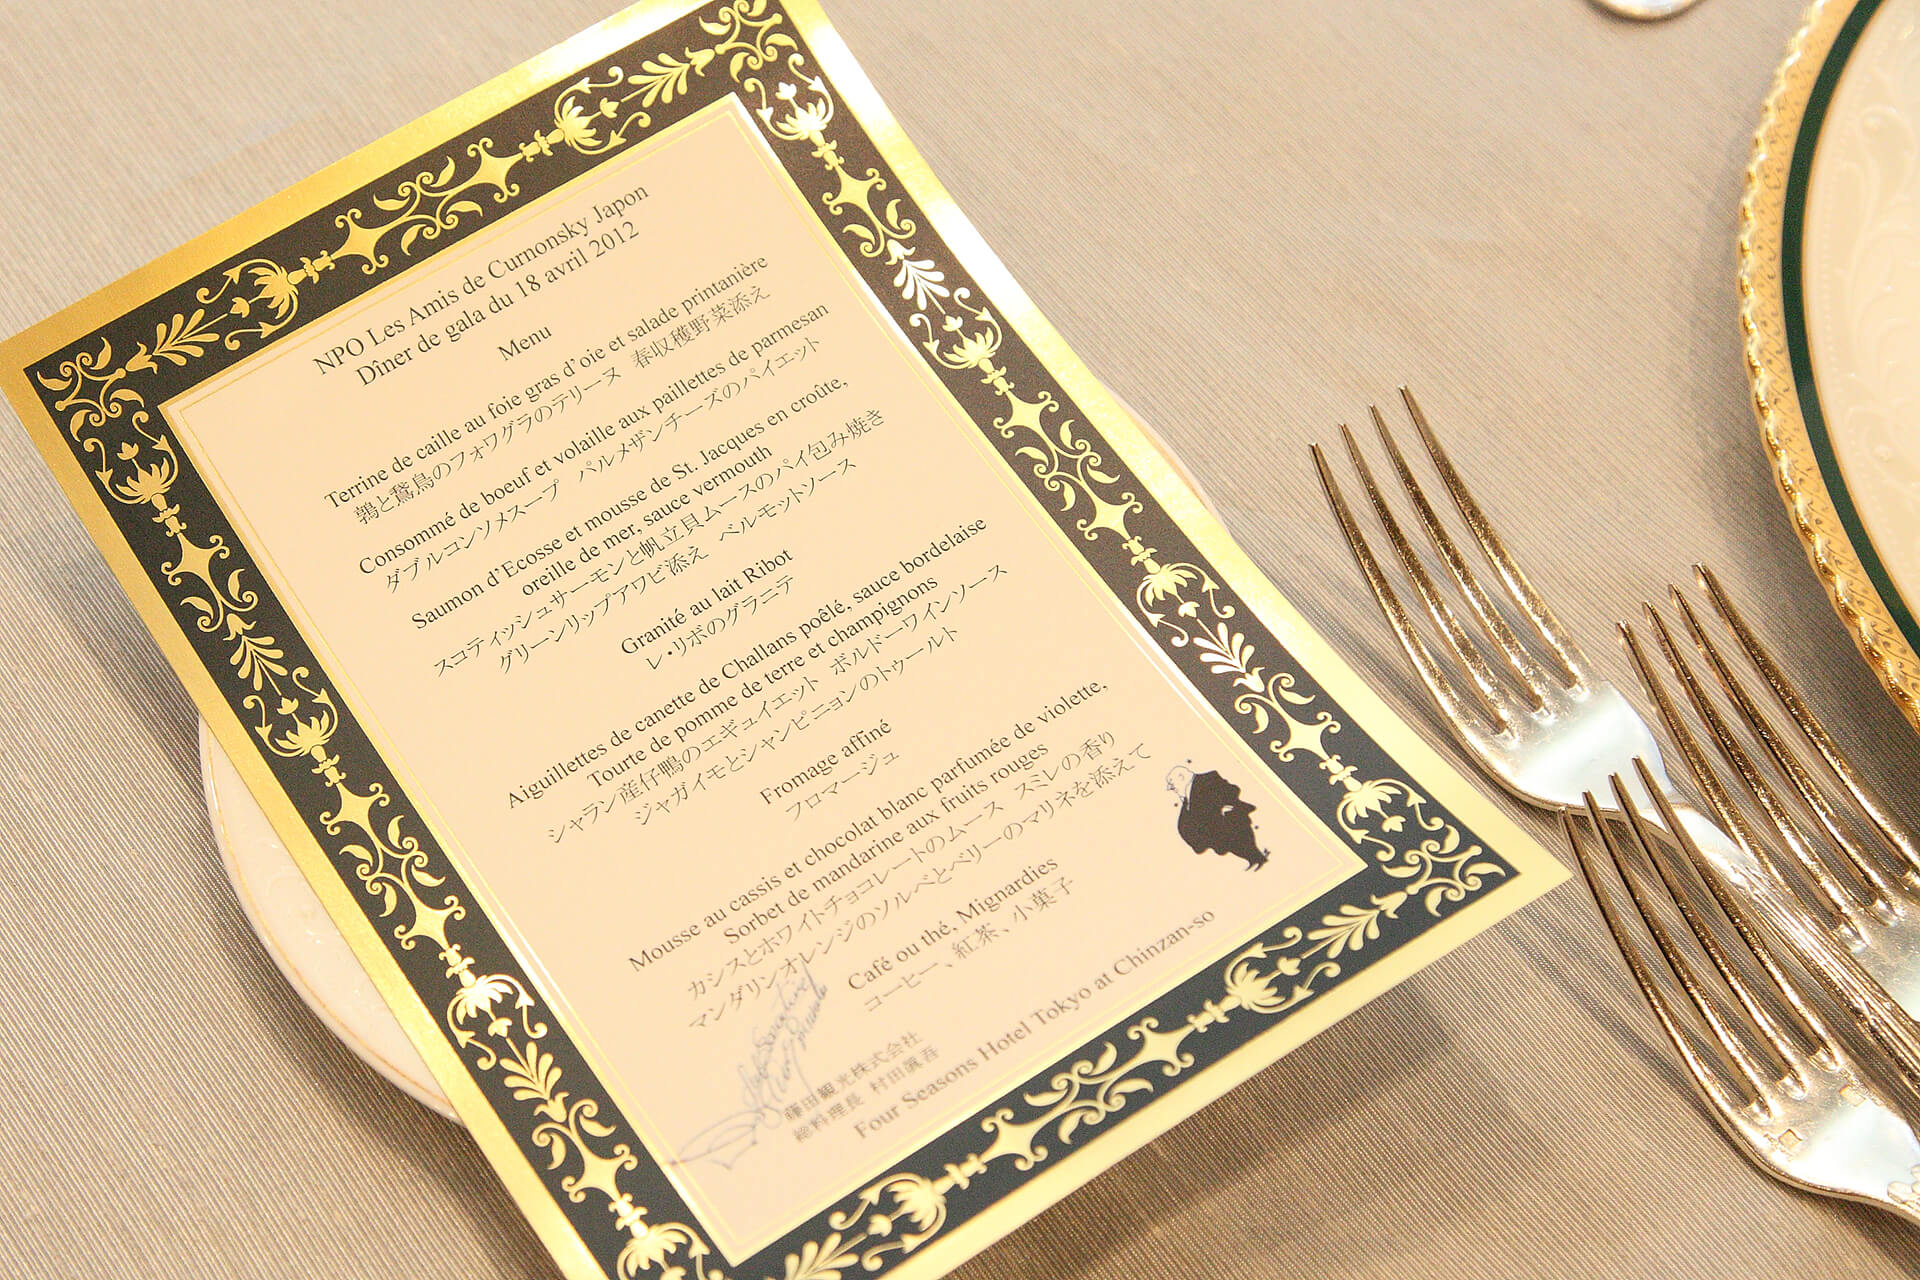 NPO Les Amis de Curnonsky Japon
Dîner de gala du 18 avril 2012
Menu
Terrine de caille au foie gras d'oie et salade printanière
鶉と鵞鳥のフォワグラのテリーヌ 春収穫野菜添え
Consommé de boeuf et volaille aux paillettes de parmesan
ダブルコンソメスープ パルメザンチーズのパイエット
Saumon d'Ecosse et mousse de St. Jacques en croûte,
oreille de mer, sauce vermouth
スコティッシュサーモンと帆立貝ムースのパイ包み焼き
グリーンリップアワビ添え ベルモットソース
Granité au lait Ribot
レ・リボのグラニテ
Aiguillettes de canette de Challans poêlé, sauce bordelaise
Tourte de pomme de terre et champignons
シャラン産仔鴨のエギュイエット ボルドーワインソース
ジャガイモとシャンピニョンのトゥールト
Fromage affiné
フロマージュ
Mousse au cassis et chocolat blanc parfumée de violette,
Sorbet de mandarine aux fruits rouges
カシスとホワイトチョコレートのムース スミレの香り
マンダリンオレンジのソルベとベリーのマリネを添えて
Café ou thé, Mignardies
コーヒー、紅茶、小菓子
藤田観光株式会社
総料理長 村田眞吾
Four Seasons Hotel Tokyo at Chinzan-so